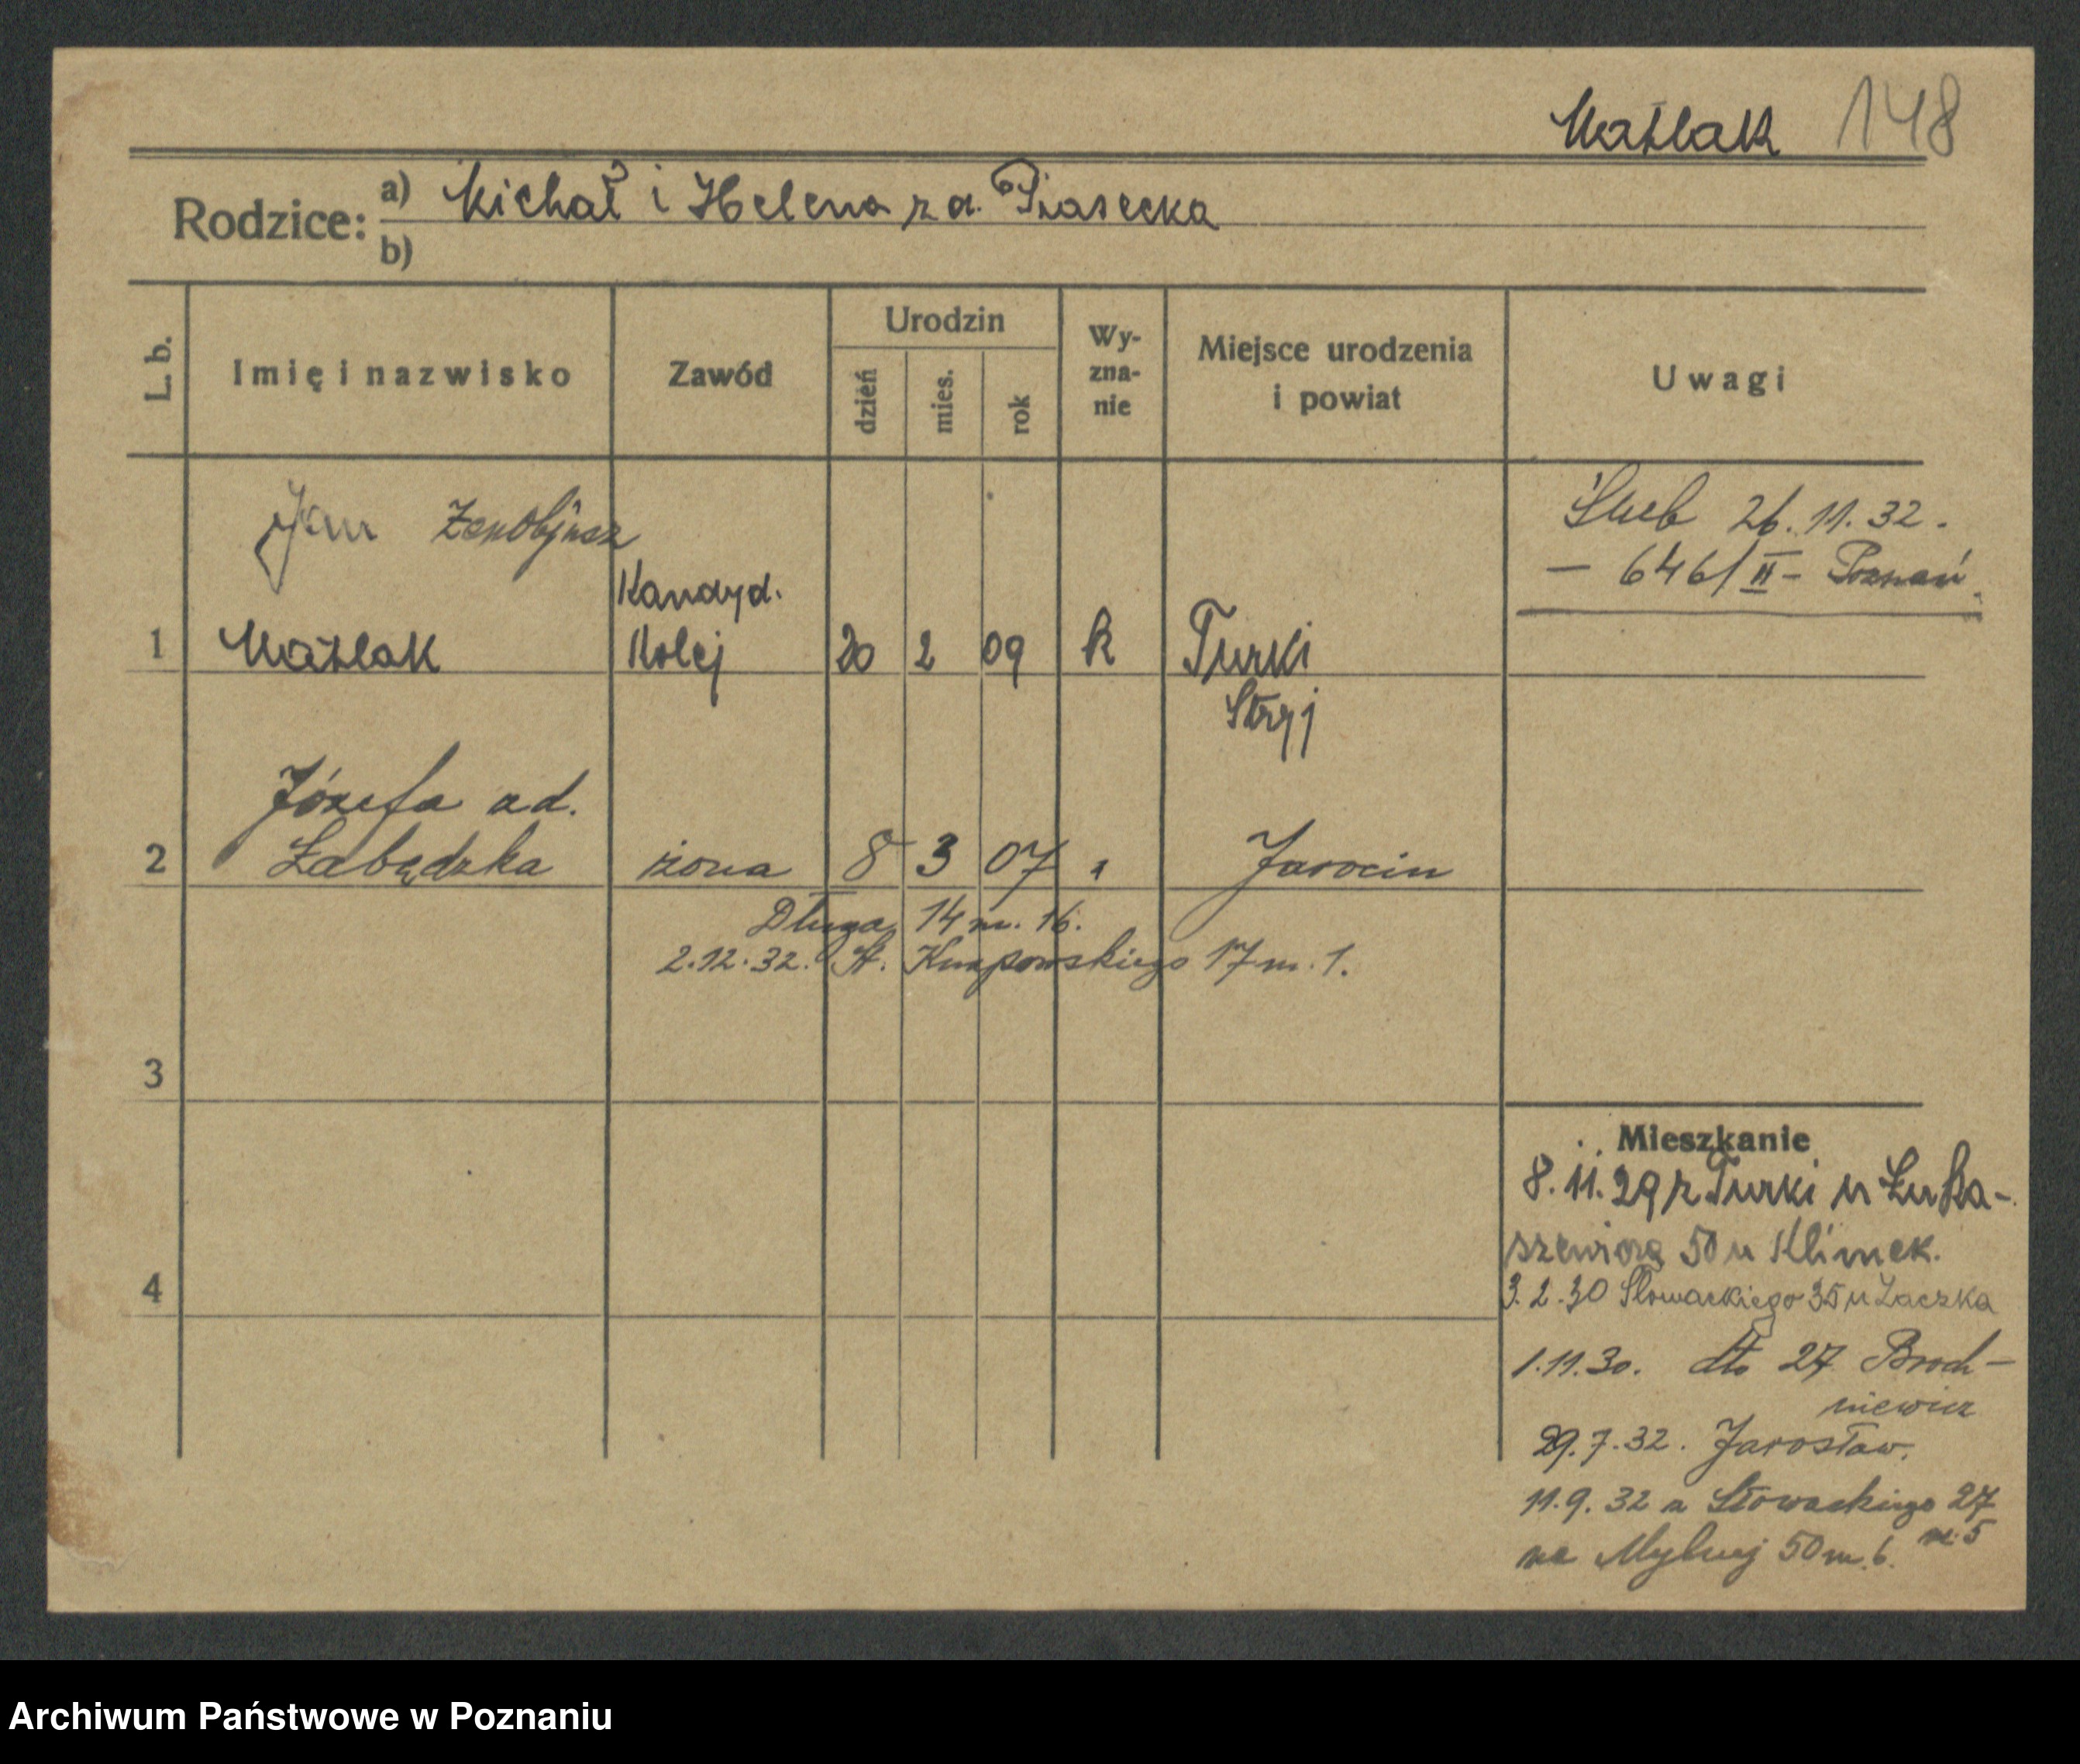 Maślak 148
Rodzice: a) Michał i Helena z d. Piasecka
b)
L. b.
Imię i nazwisko
Zawód
Urodzin
dzień
mies.
rok
Wy-
zna-
nie
Miejsce urodzenia
i powiat
Uwagi
Jan Zenobjusz
Ślub 26.11.32.
— 646/II - Poznań
Kandyd.
1 Maślak Kolej 20 2 09 k Turki
Stryj
Józefa zd.
2 Łabędzka żona 8 3 07 " Jarocin
Długa 14 m. 16.
2.12.32. St. Knapowskiego 17 m. 1.
3
Mieszkanie
8.11.29 z Turki u Łuka-
szewicza 50 u Klimek.
4
3.2.30 Słowackiego 35 u Laczka
1.11.30. dto 27 Broch-
niewicz
29.7.32. Jarosław.
11.9.32 z Słowackiego 27
m. 5
na Mylnej 50 m. 6.
Archiwum Państwowe w Poznaniu